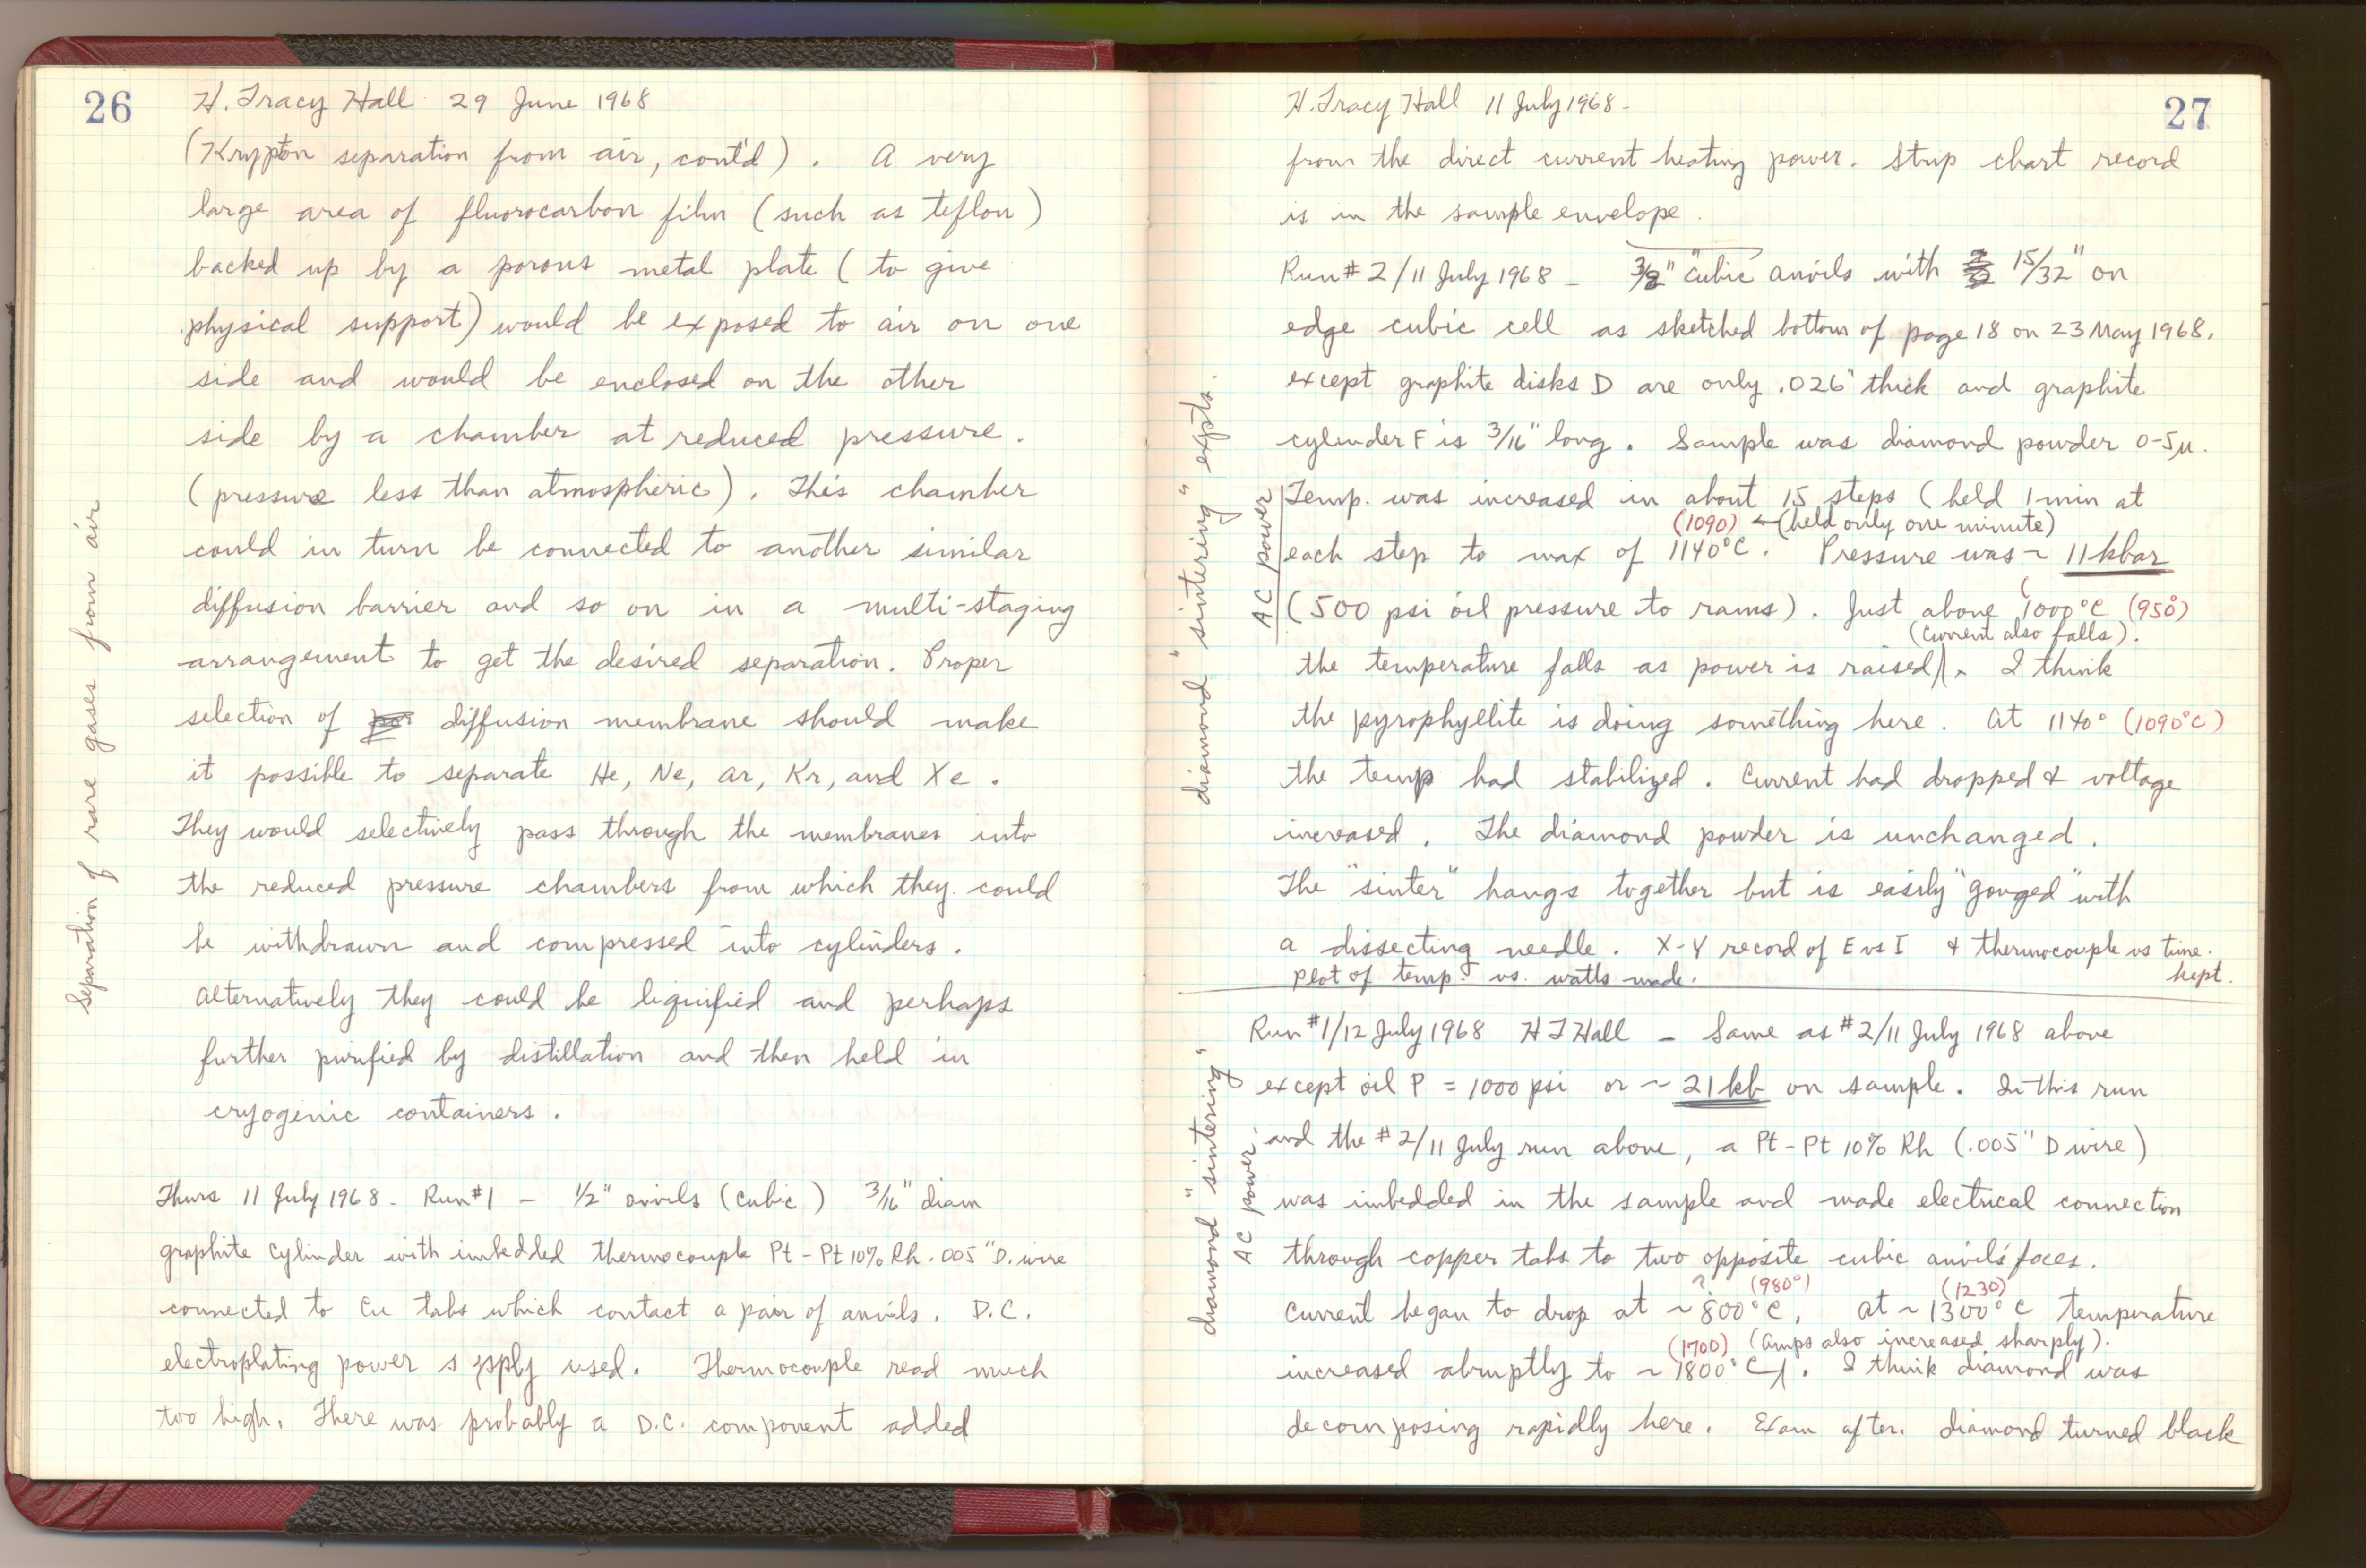 26
H. Tracy Hall 29 June 1968
(Krypton separation from air, cont'd). A very
large area of fluorocarbon film (such as teflon)
backed up by a porous metal plate (to give
physical support) would be exposed to air on one
side and would be enclosed on the other
side by a chamber at reduced pressure.
(pressure less than atmospheric). This chamber
could in turn be connected to another similar
diffusion barrier and so on in a multi-staging
arrangement to get the desired separation. Proper
selection of diffusion membrane should make
it possible to separate He, Ne, Ar, Kr, and Xe.
They would selectively pass through the membranes into
the reduced pressure chambers from which they could
be withdrawn and compressed into cylinders.
Alternatively they could be liquified and perhaps
further purified by distillation and then held in
cryogenic containers.
Separation of rare gases from air
Thurs 11 July 1968 - Run #1 - 1/2" anvils (cubic) 3/16" diam
graphite cylinder with imbedded thermocouple Pt-Pt 10% Rh .005" D. wire
connected to Cu tabs which contact a pair of anvils. D.C.
electroplating power supply used. Thermocouple read much
too high. There was probably a D.C. component added
27
H. Tracy Hall 11 July 1968 -
from the direct current heating power. Strip chart record
is in the sample envelope.
Run # 2/11 July 1968 - 3/8" cubic anvils with 15/32" on
edge cubic cell as sketched bottom of page 18 on 23 May 1968.
except graphite disks D are only .026" thick and graphite
cylinder F is 3/16" long. Sample was diamond powder 0-5µ.
Temp. was increased in about 15 steps (held 1 min at
(1090) ← (held only one minute)
each step to max of 1140°C. Pressure was ~ 11 kbar
(500 psi oil pressure to rams). Just above 1000°C (950)
(current also falls).
the temperature falls as power is raised. I think
the pyrophyllite is doing something here. At 1140° (1090°C)
the temp had stabilized. Current had dropped & voltage
increased. The diamond powder is unchanged.
The "sinter" hangs together but is easily "gouged" with
a dissecting needle. X-Y record of E vs I & thermocouple vs time.
plot of temp. vs. watts made. kept.
diamond "sintering" expts.
AC power
Run #1/12 July 1968 H T Hall - Same as #2/11 July 1968 above
except oil P = 1000 psi or ~ 21 kb on sample. In this run
and the #2/11 July run above, a Pt-Pt 10% Rh (.005" D wire)
was imbedded in the sample and made electrical connection
through copper tabs to two opposite cubic anvils faces.
? (980°) (1230)
Current began to drop at ~ 800°C. At ~ 1300°C temperature
(1700) (Amps also increased sharply).
increased abruptly to ~ 1800°C. I think diamond was
decomposing rapidly here. Exam after. Diamond turned black
diamond "sintering"
AC power.